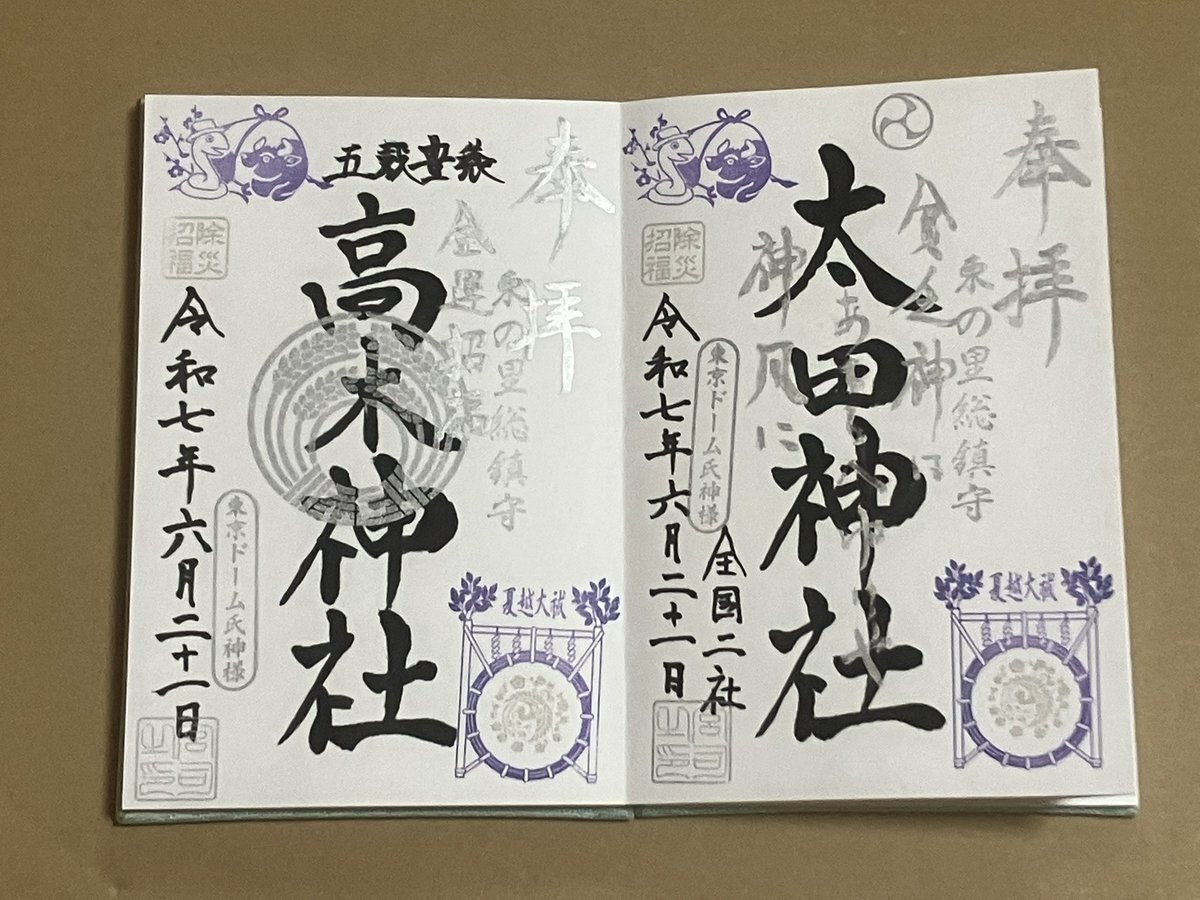 奉拝
東の里総鎮守
貧乏神は
太田神社
あしや
神風に
東京ドーム氏神様
全国二社
令和七年六月二十一日
除災招福
夏越大祓
宮司之印
奉拝
東の里総鎮守
金運招福
五穀豊穣
高木神社
東京ドーム氏神様
令和七年六月二十一日
除災招福
夏越大祓
宮司之印